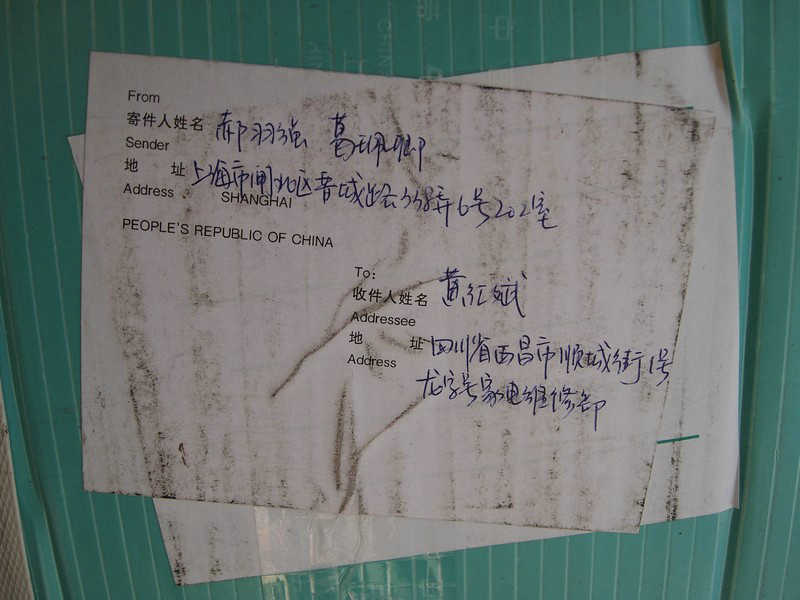 From
寄件人姓名 郝羽强 葛珮卿
Sender
地 址 上海市闸北区晋城路338弄6号202室
Address SHANGHAI
PEOPLE'S REPUBLIC OF CHINA
To:
收件人姓名 黄红斌
Addressee
地 址 四川省西昌市顺城街1号
Address 龙字号家电维修部